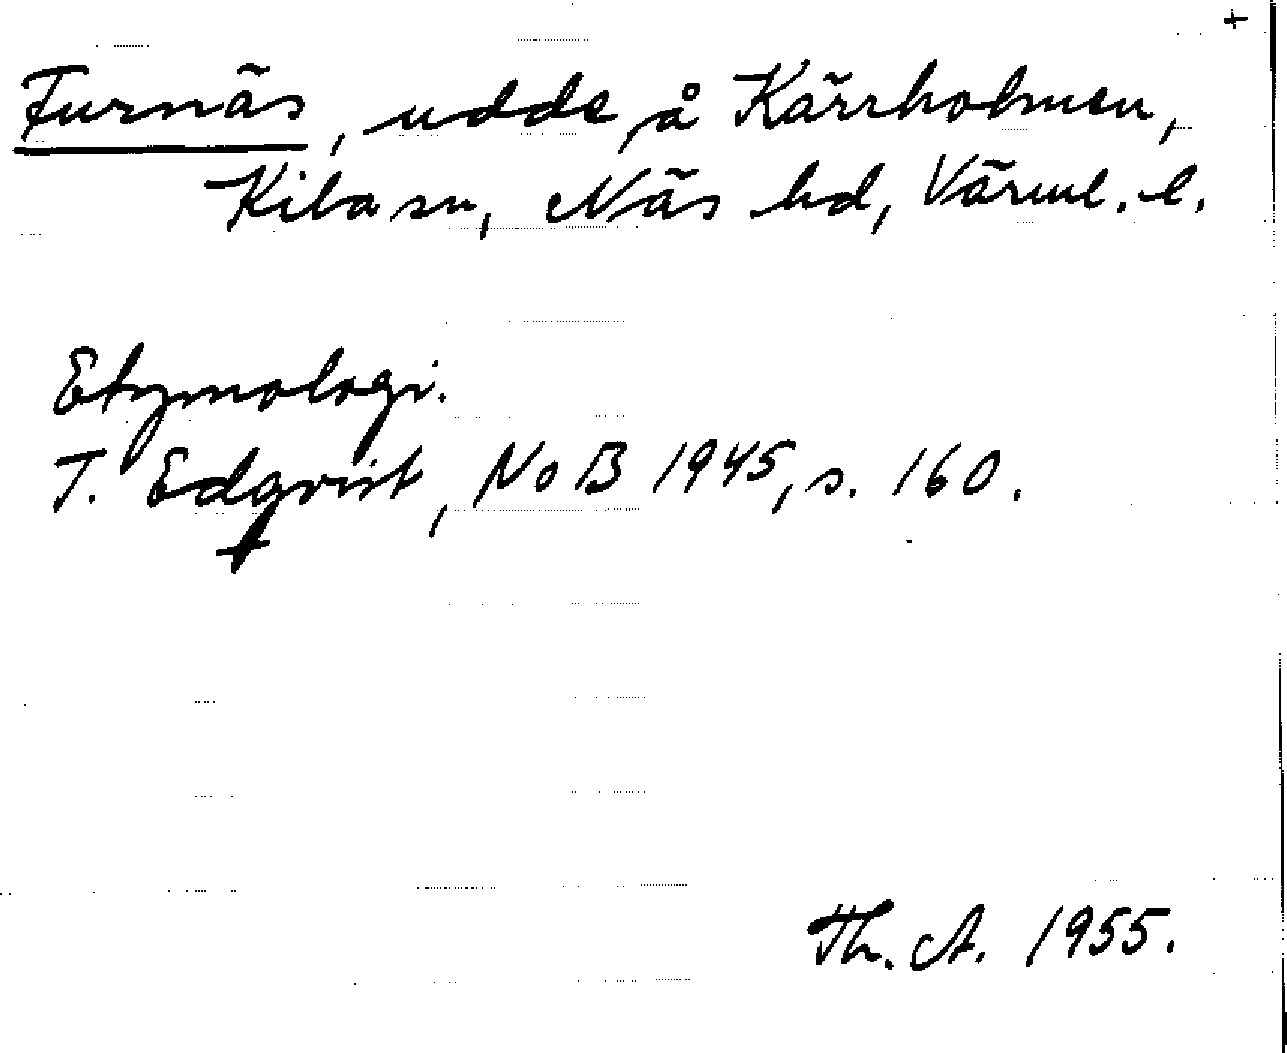 +
Furnäs, udde å Kärrholmen,
Kila sn, Näs hd, Värml. l.
Etymologi.
T. Edqvist, NoB 1945, s. 160.
Th. A. 1955.